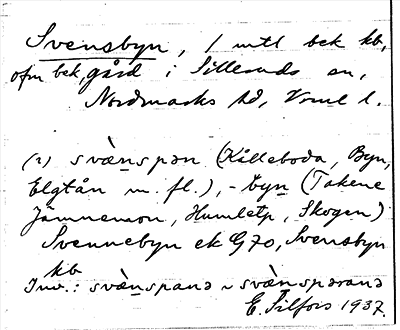 Svensbyn, 1 mtl bek kb,
ofm bek, gård i Silleruds sn,
Nordmarks hd, Vrml l.
(2) svènspən (Killeboda, Byn,
Elgtån m. fl.), -byn (Takene
Jämnemon, Humletp, Skogen)
Svennebyn ek G 70, Svensbyn
kb
Inv.: svènspanə ~ svènspərand
E. Tilfors 1937.